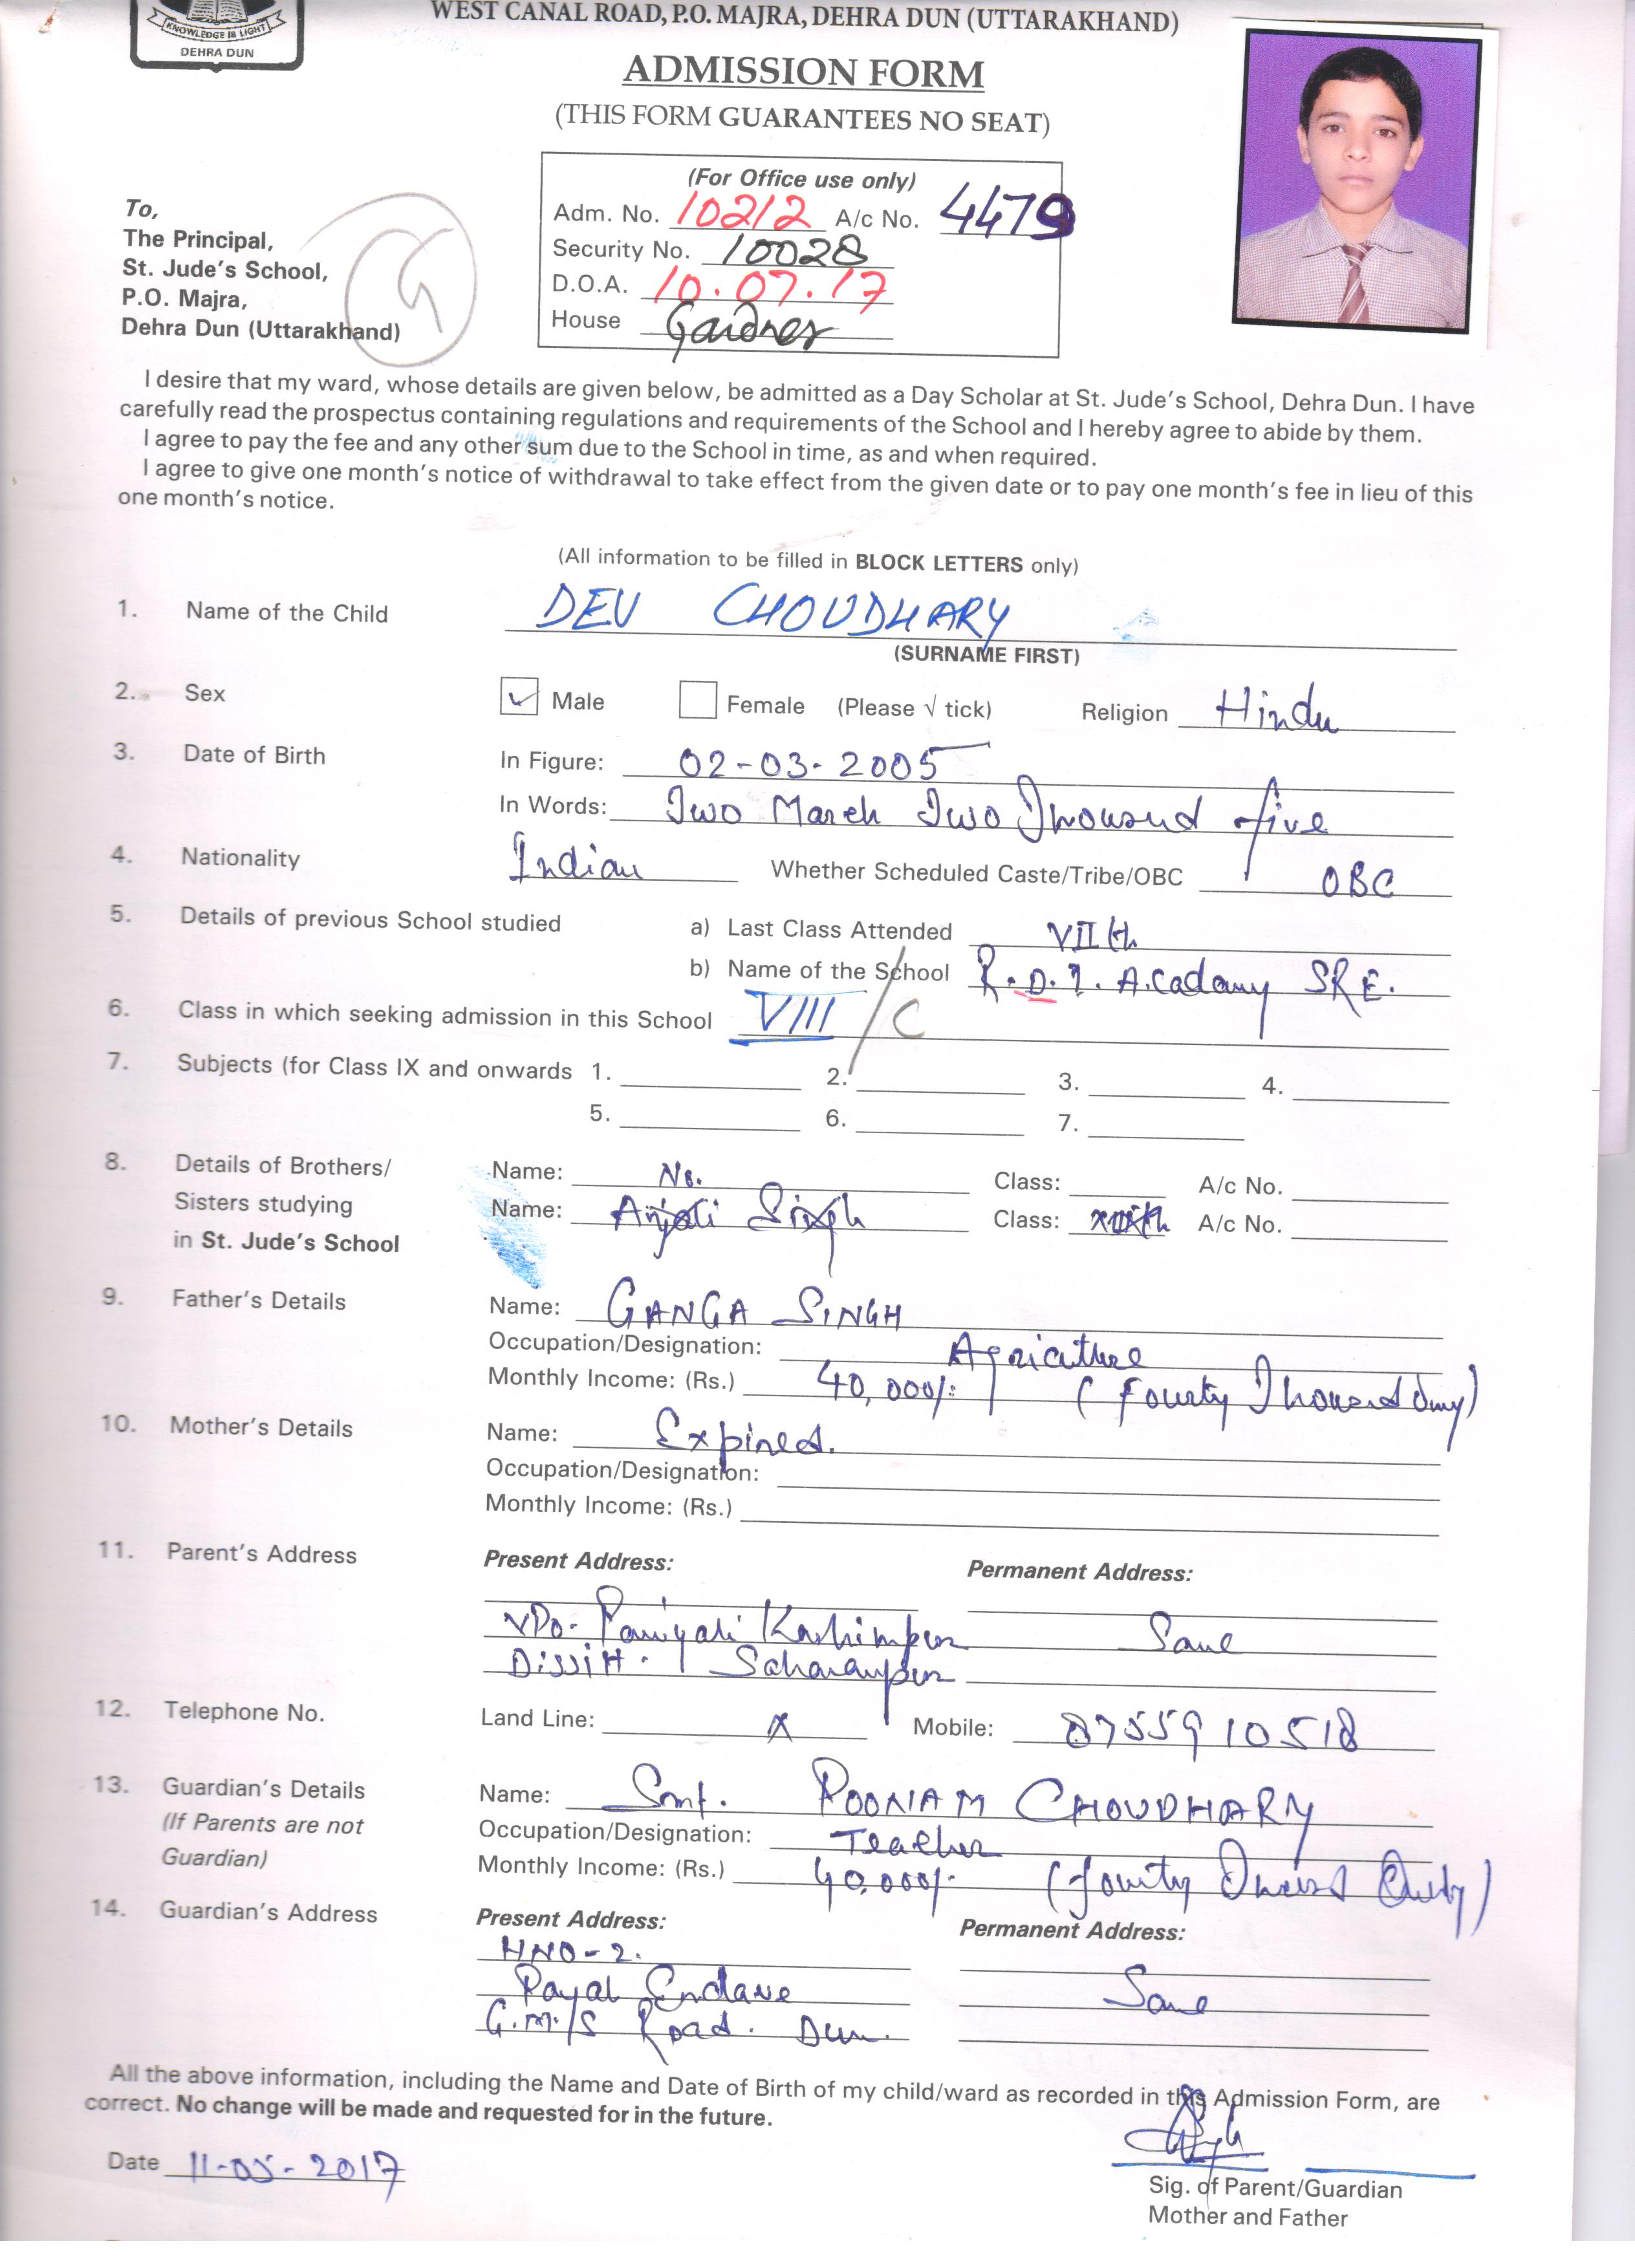 WEST CANAL ROAD, P.O. MAJRA, DEHRA DUN (UTTARAKHAND)
KNOWLEDGE IS LIGHT
DEHRA DUN
ADMISSION FORM
(THIS FORM GUARANTEES NO SEAT)
(For Office use only)
Adm. No. 10212 A/c No. 4479
Security No. 10028
D.O.A. 10.07.17
House Gardner
To,
The Principal,
St. Jude's School,
P.O. Majra,
Dehra Dun (Uttarakhand)
I desire that my ward, whose details are given below, be admitted as a Day Scholar at St. Jude's School, Dehra Dun. I have
carefully read the prospectus containing regulations and requirements of the School and I hereby agree to abide by them.
I agree to pay the fee and any other sum due to the School in time, as and when required.
I agree to give one month's notice of withdrawal to take effect from the given date or to pay one month's fee in lieu of this
one month's notice.
(All information to be filled in BLOCK LETTERS only)
1. Name of the Child DEV CHOUDHARY
(SURNAME FIRST)
2. Sex Male Female (Please √ tick) Religion Hindu
3. Date of Birth In Figure: 02-03-2005
In Words: Two March Two Thousand five
4. Nationality Indian Whether Scheduled Caste/Tribe/OBC OBC
5. Details of previous School studied a) Last Class Attended VII th
b) Name of the School R.D.I. Acadamy SRE.
6. Class in which seeking admission in this School VIII /C
7. Subjects (for Class IX and onwards 1. 2. 3. 4.
5. 6. 7.
8. Details of Brothers/ Name: No. Class: A/c No.
Sisters studying Name: Anjali Singh Class: A/c No.
in St. Jude's School
9. Father's Details Name: GANGA SINGH
Occupation/Designation: Agricuthre
Monthly Income: (Rs.) 40,000/- (Fourty Thousand Only)
10. Mother's Details Name: Expired.
Occupation/Designation:
Monthly Income: (Rs.)
11. Parent's Address Present Address: Permanent Address:
VPO- Paniyali Kashimpur Same
Disstt. Saharanpur
12. Telephone No. Land Line: X Mobile: 8755910518
13. Guardian's Details Name: Smt. POONAM CHOUDHARY
(If Parents are not Occupation/Designation: Teacher
Guardian) Monthly Income: (Rs.) 40,000/- (fourty Only)
14. Guardian's Address Present Address: Permanent Address:
HNO-2.
Royal Enclave Same
G.M.S Road. Dun.
All the above information, including the Name and Date of Birth of my child/ward as recorded in this Admission Form, are
correct. No change will be made and requested for in the future.
Date 11-05-2017
Sig. of Parent/Guardian
Mother and Father